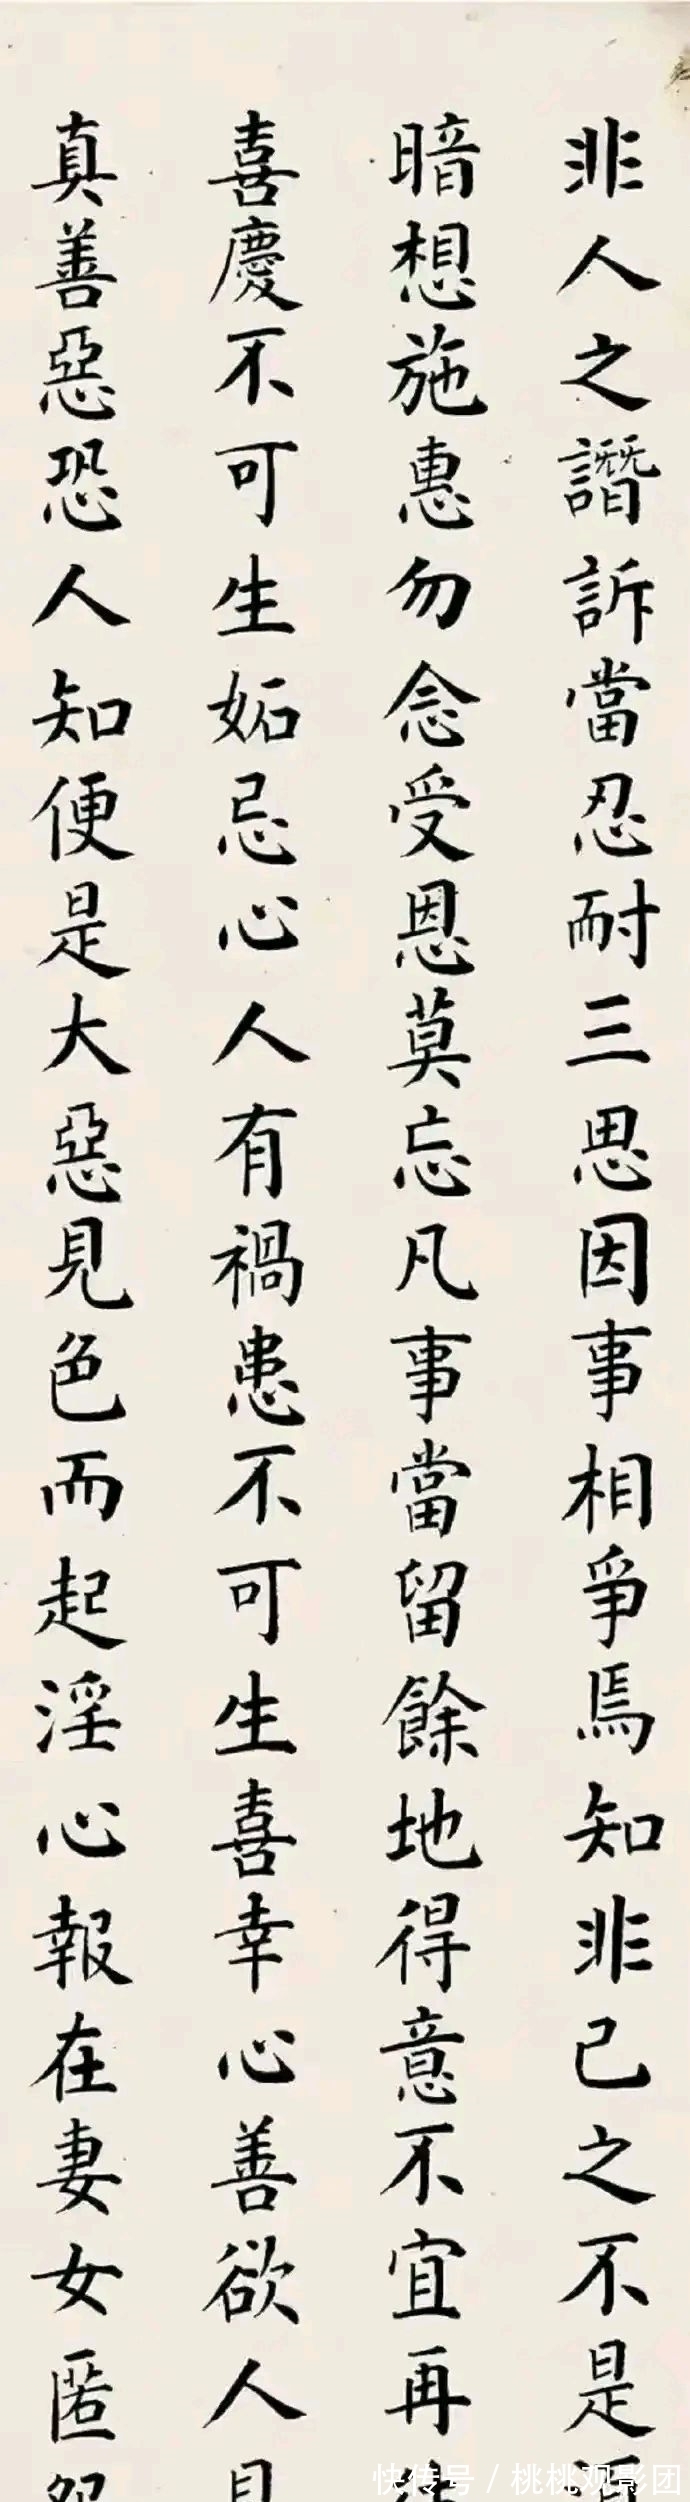 非人之譖訴當忍耐三思因事相爭焉知非己之不是
暗想施惠勿念受恩莫忘凡事當留餘地得意不宜再
喜慶不可生妬忌心人有禍患不可生喜幸心善欲人
真善惡恐人知便是大惡見色而起淫心報在妻女匿
快传号 / 桃桃观影团